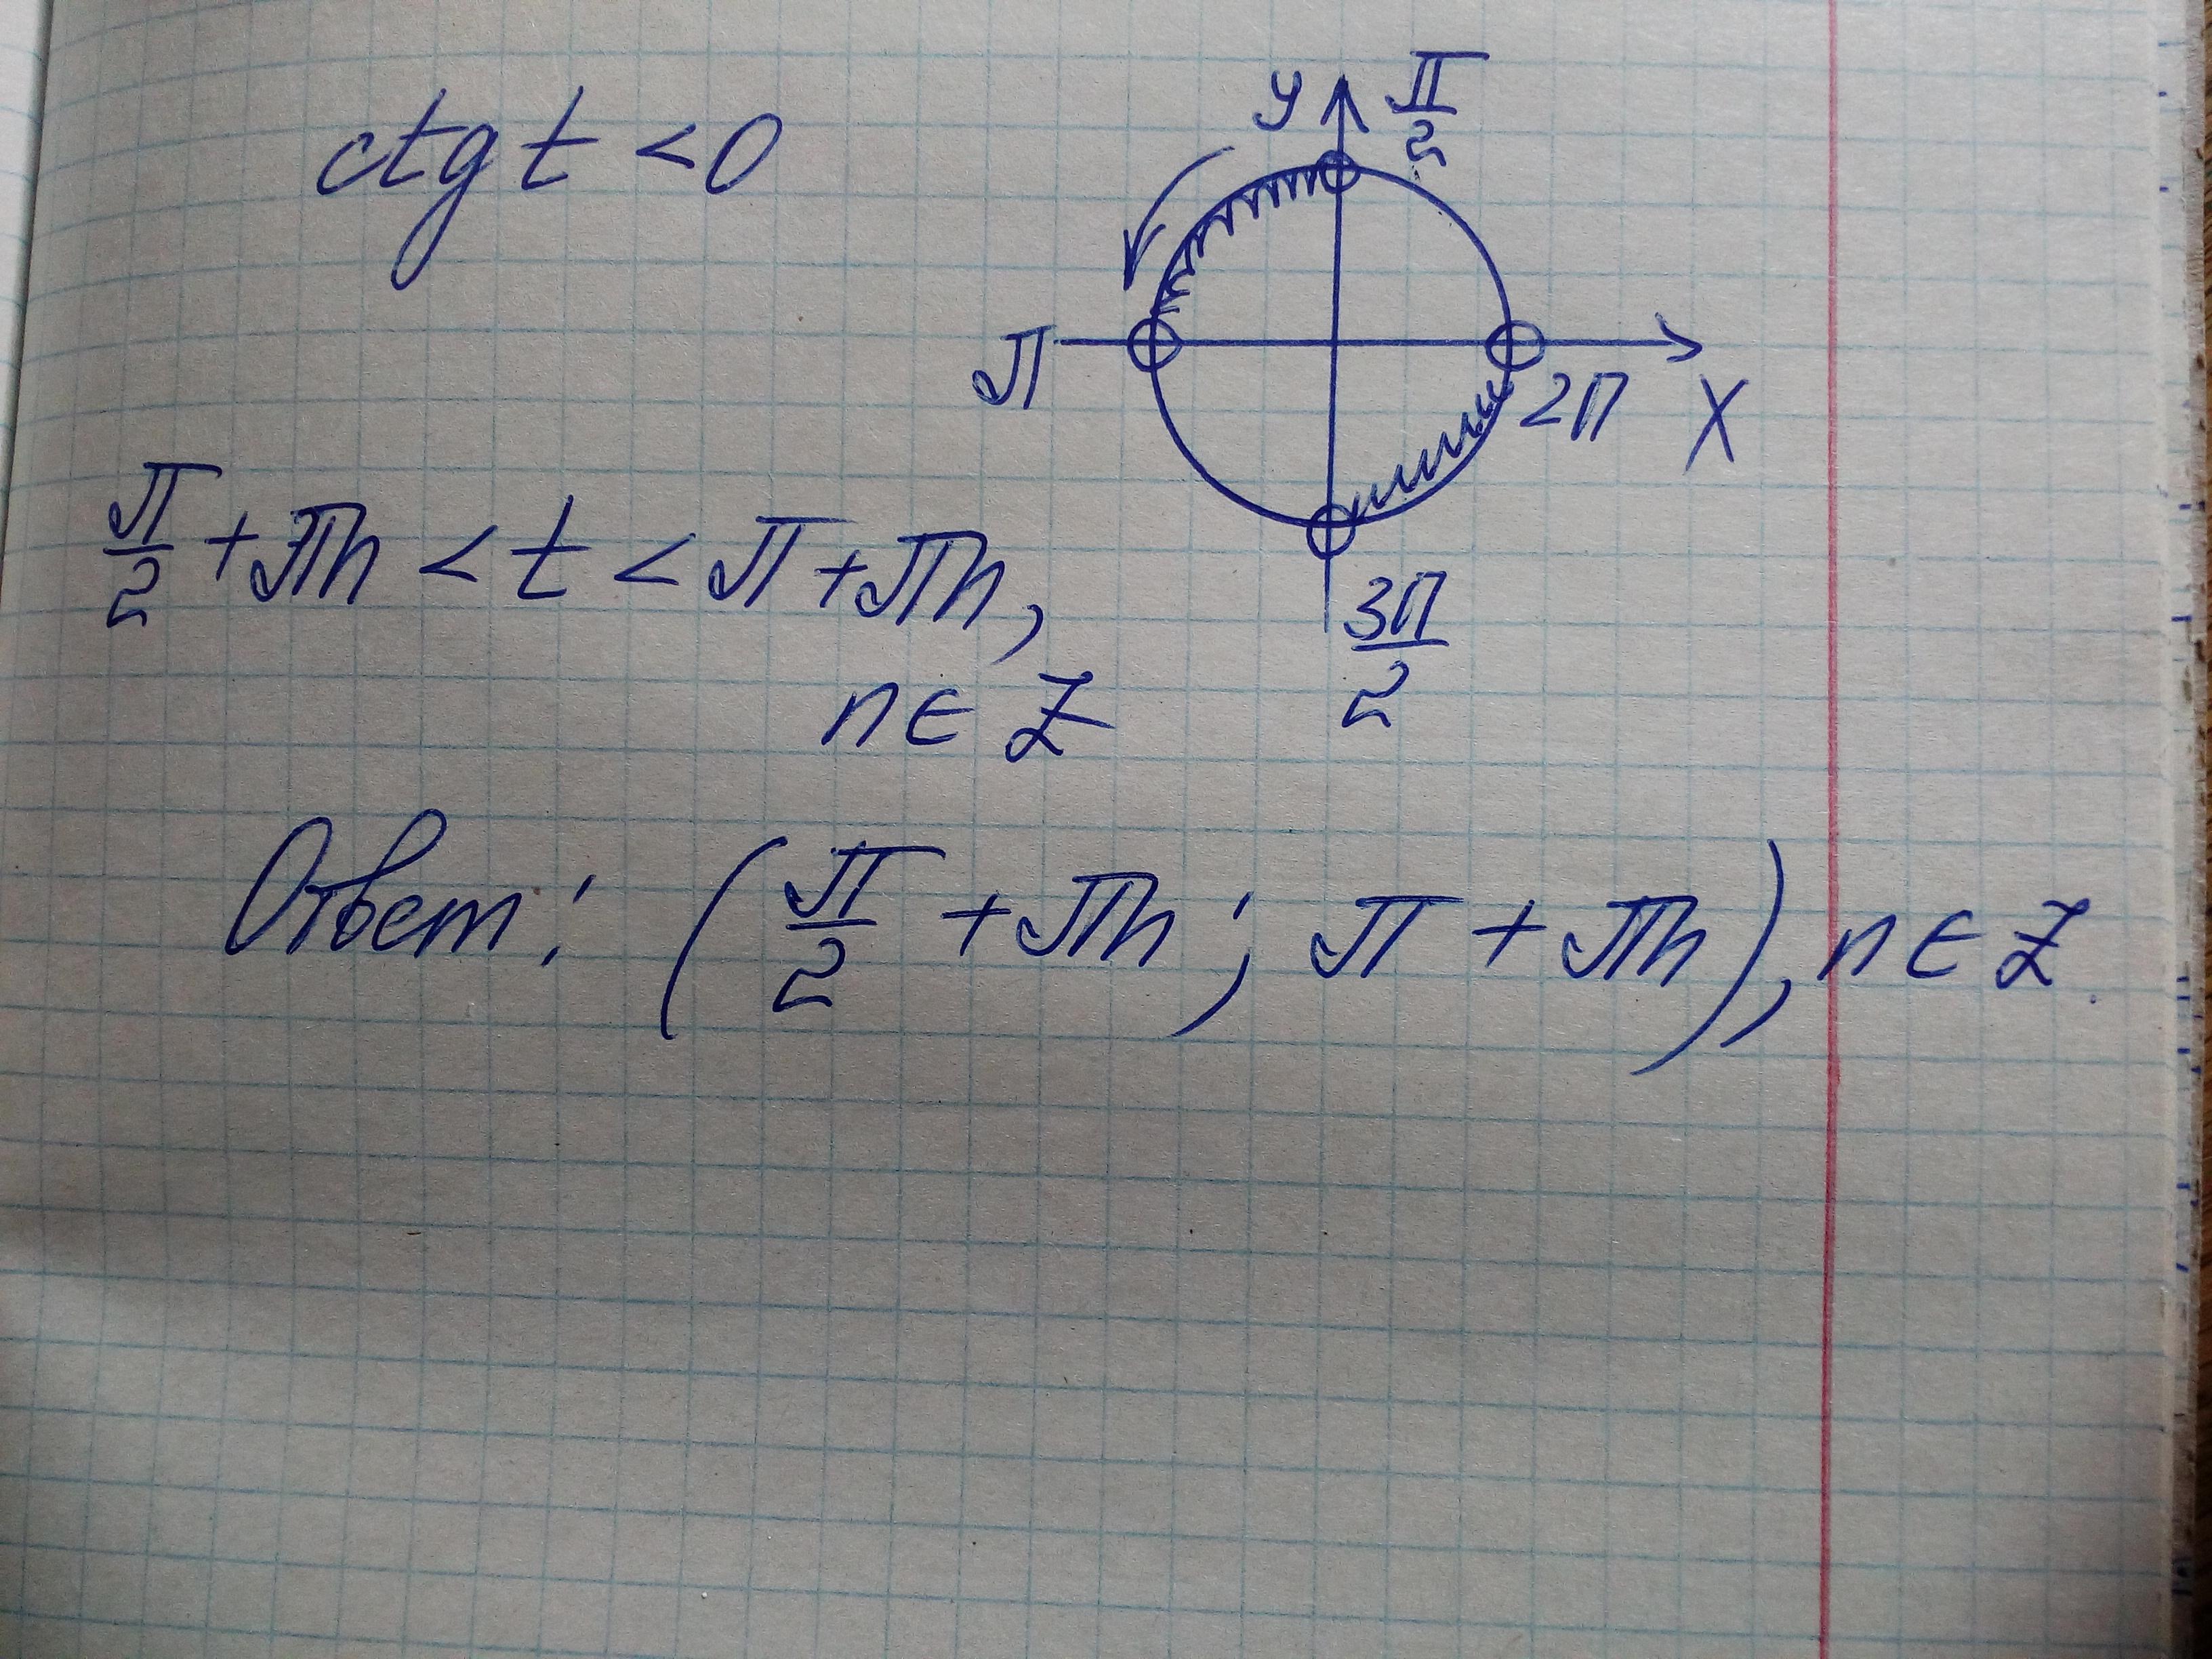 ctg t < 0
y π/2
π
2π x
3π/2
π/2 + πn < t < π + πn,
n ∈ Z
Ответ: (π/2 + πn; π + πn), n ∈ Z.